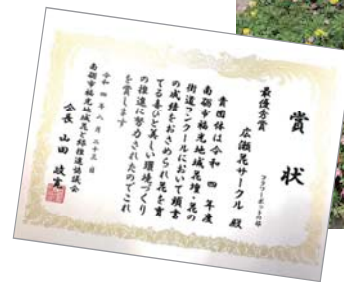 賞状
フラワーポットの部
最優秀賞
広瀬花サークル 殿
貴団体は令和四年度
南砺市福光地域花壇・花の
街道コンクールにおいて頭書
の成績をおさめられ花を育
てる喜びと美しい環境づくり
の推進に努力されたのでこれ
を賞します
令和四年八月二十三日
南砺市福光地域花と緑推進協議会
会長 山田 政寛